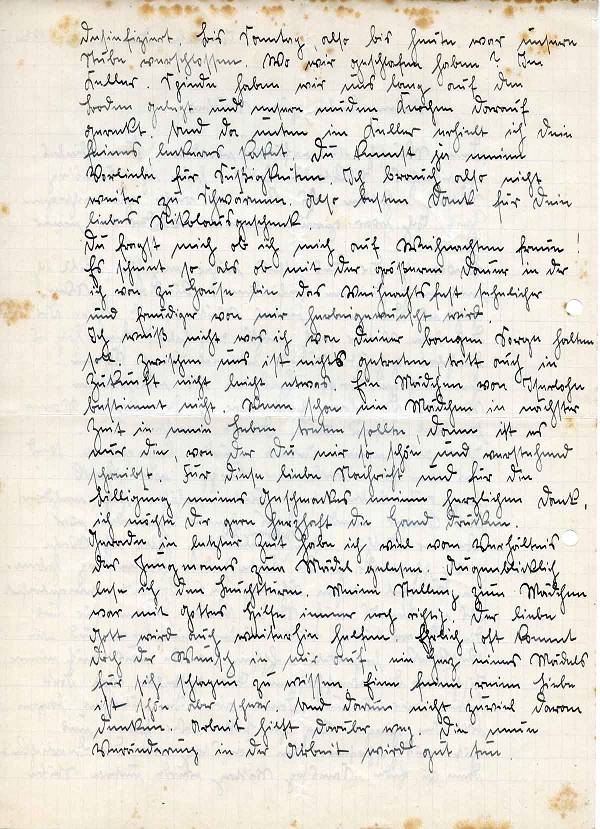 desinfiziert. bis Sonntag, also bis heute war unsere
Stube verschlossen. Wo wir geschlafen haben? Im
Keller. Spinde haben wir uns lang auf den
Boden gelegt und unsere müden Knochen darauf
gereckt. Und da unten im Keller erhielt ich Dein
feines, leckeres Paket. Du kennst ja meine
Vorliebe für Süßigkeiten. Ich brauch also nicht
weiter zu schwärmen. Also besten Dank für Dein
liebes Nikolausgeschenk.
Du fragst mich ob ich mich auf Weihnachten freue!
Es scheint so als ob mit der größeren Dauer in der
ich von zu Hause bin das Weihnachtsfest sehnlicher
und freudiger von mir herbeigewünscht wird.
Ich weiß nicht was ich von Deiner bangen Sorge halten
soll, zwischen uns ist nichts getreten, tritt auch in
Zukunft nicht leicht etwas. Ein Mädchen von Iserlohn
bestimmt nicht. Wenn schon ein Mädchen in nächster
Zeit in mein Leben treten sollte, dann ist es
nur die, von der Du mir so schön und verstehend
schreibst. Für diese liebe Nachricht und für die
Billigung meines Geschmackes meinen herzlichen Dank,
ich möchte Dir gern herzhaft die Hand drücken.
Gerade in letzter Zeit habe ich viel vom Verhältnis
des Jungmannes zum Mädel gelesen. Augenblicklich
lese ich den Leuchtturm. Meine Stellung zum Mädchen
war mit Gottes Hilfe immer noch richtig. Der liebe
Gott wird auch weiterhin helfen. Ehrlich, oft kommt
doch der Wunsch in mir auf, ein Herz eines Mädels
für sich schlagen zu wissen. Eine feine, reine Liebe
ist schön aber schwer. Und darum nicht zuviel daran
denken. Arbeit hilft darüber weg. Die neue
Veränderung in der Arbeit wird gut tun.